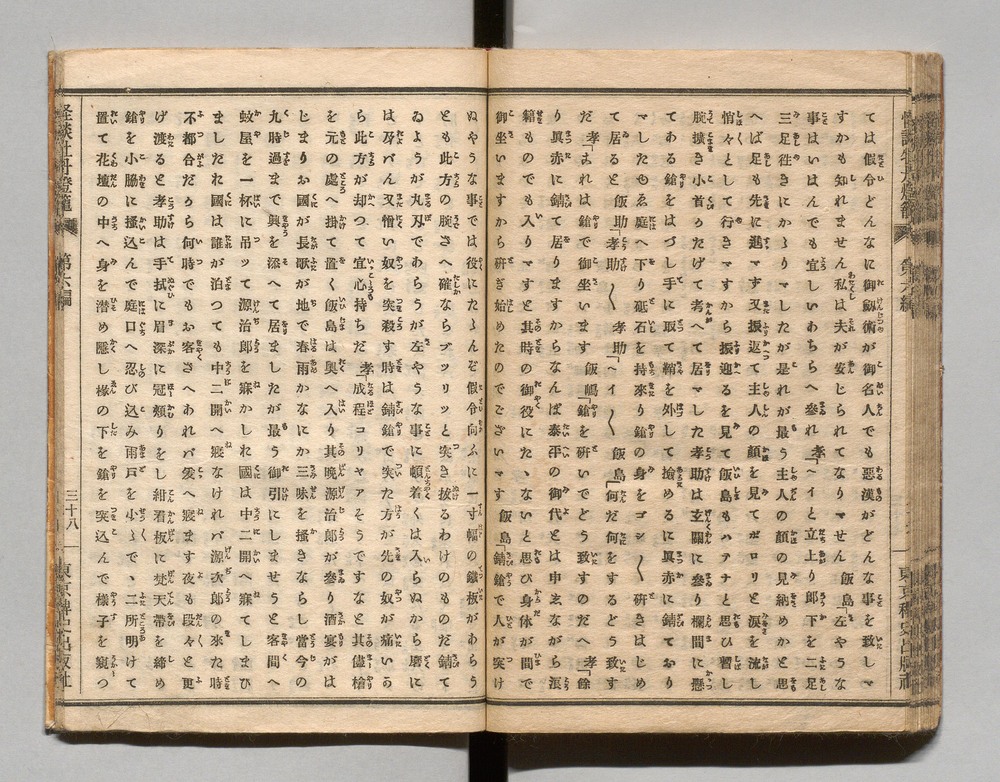 ては假令どんなに御劒術が御名人でも惡漢がどんな事を致しま
すかも知れません私は夫が案じられてなりません 飯島「左やうな
事はいはんでも宜しいあちらへ參れ 孝「ヘイと立上り郎下を二足
三足徃きにかゝりましたが是れが最う主人の顏の見納めかと思
へば足も先に進まず又振返て主人の顏を見てポロリと淚を流し
悄々として行きますから振迎るを見て飯島もハテナと思ひ暫し
腕𢭐き小首かたげて考へて居ました孝助は玄關に參り欄間に懸
てある鎗をはづし手に取て鞘を外して撿めるに眞赤に錆ており
ましたもゑ庭へ下り砥石を持來り鎗の身をゴシ〱硏きはじめ
て居ると 飯助「孝助〱 孝助「ヘイ〱 飯島「何だ何をするどう致
た 孝「これは鎗で御坐います 飯嶋「鎗を硏いでどう致すのだへ 孝「餘
り眞赤に錆て居りますからなんぼ泰平の御代とは申ながら盗
賊もので入りますと其時の御役にたゝないと思ひ身体が間で
御坐いますから硏ぎ始めたのでございます 飯島「錆鎗で人が突け
ぬやうな事では役にたゝんぞ假令向ふに一寸幅の鐵板があらう
とも此方の腕さへ確ならブツリッと突き拔るわけのものだ錆て
ゐようが丸刃であらうが左やうな事に頓着くは入らぬから磨に
は及バん又憎い奴を突殺す時は錆鎗で突た方が先の奴が痛いか
ら此方が却つて宜心持ちだ 孝「成程コリャアそうですなと其儘槍
を元の處へ掛て置く飯島は奧へ入り其晩源治郎が參り酒宴がは
じまりお國が長歌が地で春雨かなにか三味を搔きならし當今の
九時過まで興を添へて居ましたが最う御引にしませうと客間へ
蚊屋を一杯に吊ッて源治郎を寐かしお國は中二開へ寐てしまひ
ましたお國は誰が泊つても中二開へ寢なけれバ源次郎の來た時
不都合だから何時でもお客さへあれバ爰へ寢ます夜も段々と更
げ渡ると孝助は手拭に眉深に冠頰りをし紺看板に梵天帶を締め
鎗を小脇に搔込んで庭口へ忍び込み雨戸を少しくゝ二所明けて
置て花壇の中へ身を潛め隱し椽の下を鎗を突込んで樣子を窺つ
怪談牡丹燈籠 第六編
三十八
東京稗史出版社